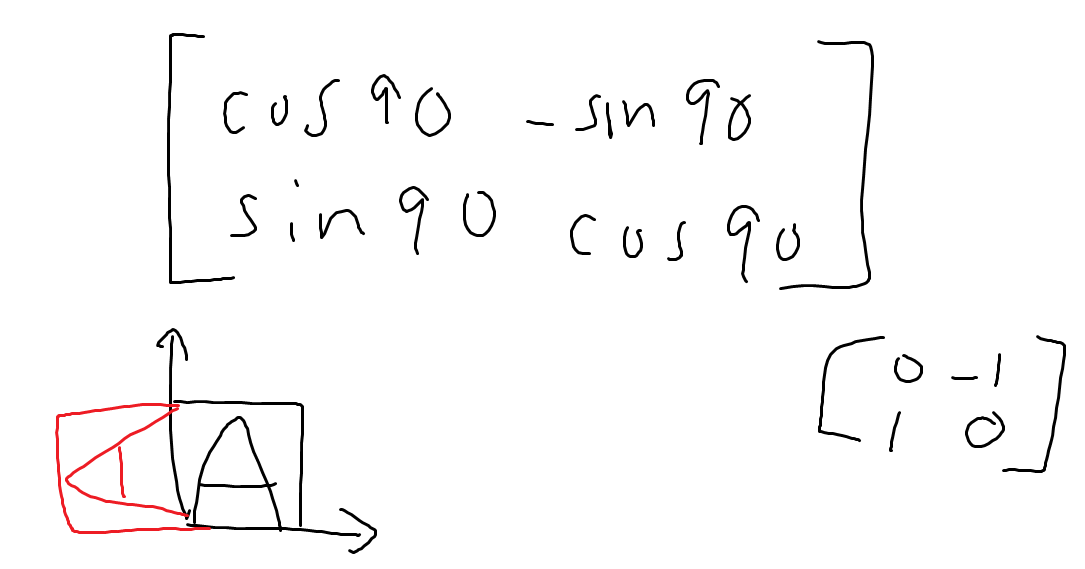 cos 90 - sin 90
sin 90 cos 90
0 -1
1 0
A
A